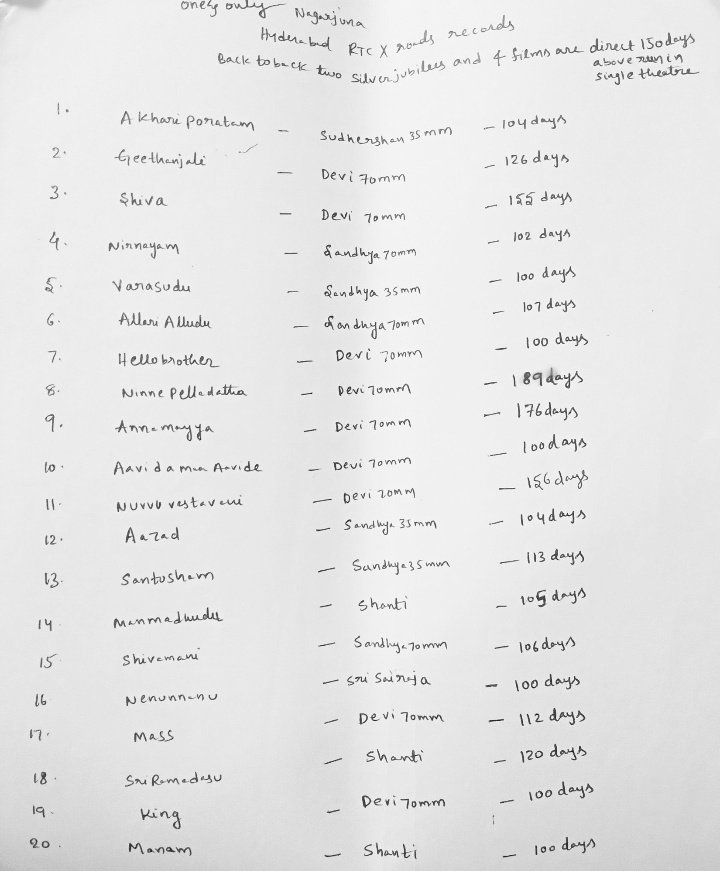 one & only Nagarjuna
Hyderabad RTC X roads records
Back to back two silverjubilees and 4 films are direct 150 days
above run in
single theatre
1. Akhari poratam - Sudhershan 35mm - 104 days
2. Geethanjali - Devi 70mm - 126 days
3. Shiva - Devi 70mm - 155 days
4. Nirnayam - Sandhya 70mm - 102 days
5. Varasudu - Sandhya 35mm - 100 days
6. Allari Alludu - Sandhya 70mm - 107 days
7. Hellobrother - Devi 70mm - 100 days
8. Ninne Pelladatha - Devi 70mm - 189 days
9. Annamayya - Devi 70mm - 176 days
10. Aavida maa Aavide - Devi 70mm - 100 days
11. Nuvvu vastavani - Devi 70mm - 156 days
12. Aazad - Sandhya 35mm - 104 days
13. Santosham - Sandhya 35mm - 113 days
14 Manmadhudu - Shanti - 105 days
15 Shivamani - Sandhya 70mm - 106 days
16 Nenunnanu - Sri Sairaja - 100 days
17. Mass - Devi 70mm - 112 days
18. Sri Ramadasu - Shanti - 120 days
19. King - Devi 70mm - 100 days
20. Manam - Shanti - 100 days